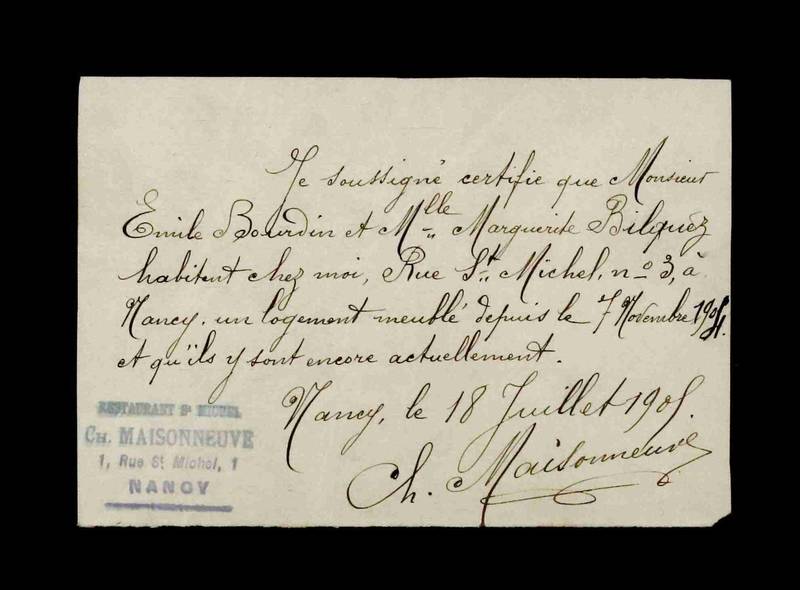 Je soussigné certifie que Monsieur
Emile Bourdin et Mlle Marguerite Bilquez
habitent chez moi, Rue St Michel, no 3, à
Nancy, un logement meublé depuis le 7 Novembre 1904.
et qu'ils y sont encore actuellement.
Nancy, le 18 Juillet 1905.
Ch. Maisonneuve
RESTAURANT St MICHEL
CH. MAISONNEUVE
1, Rue St Michel, 1
NANCY